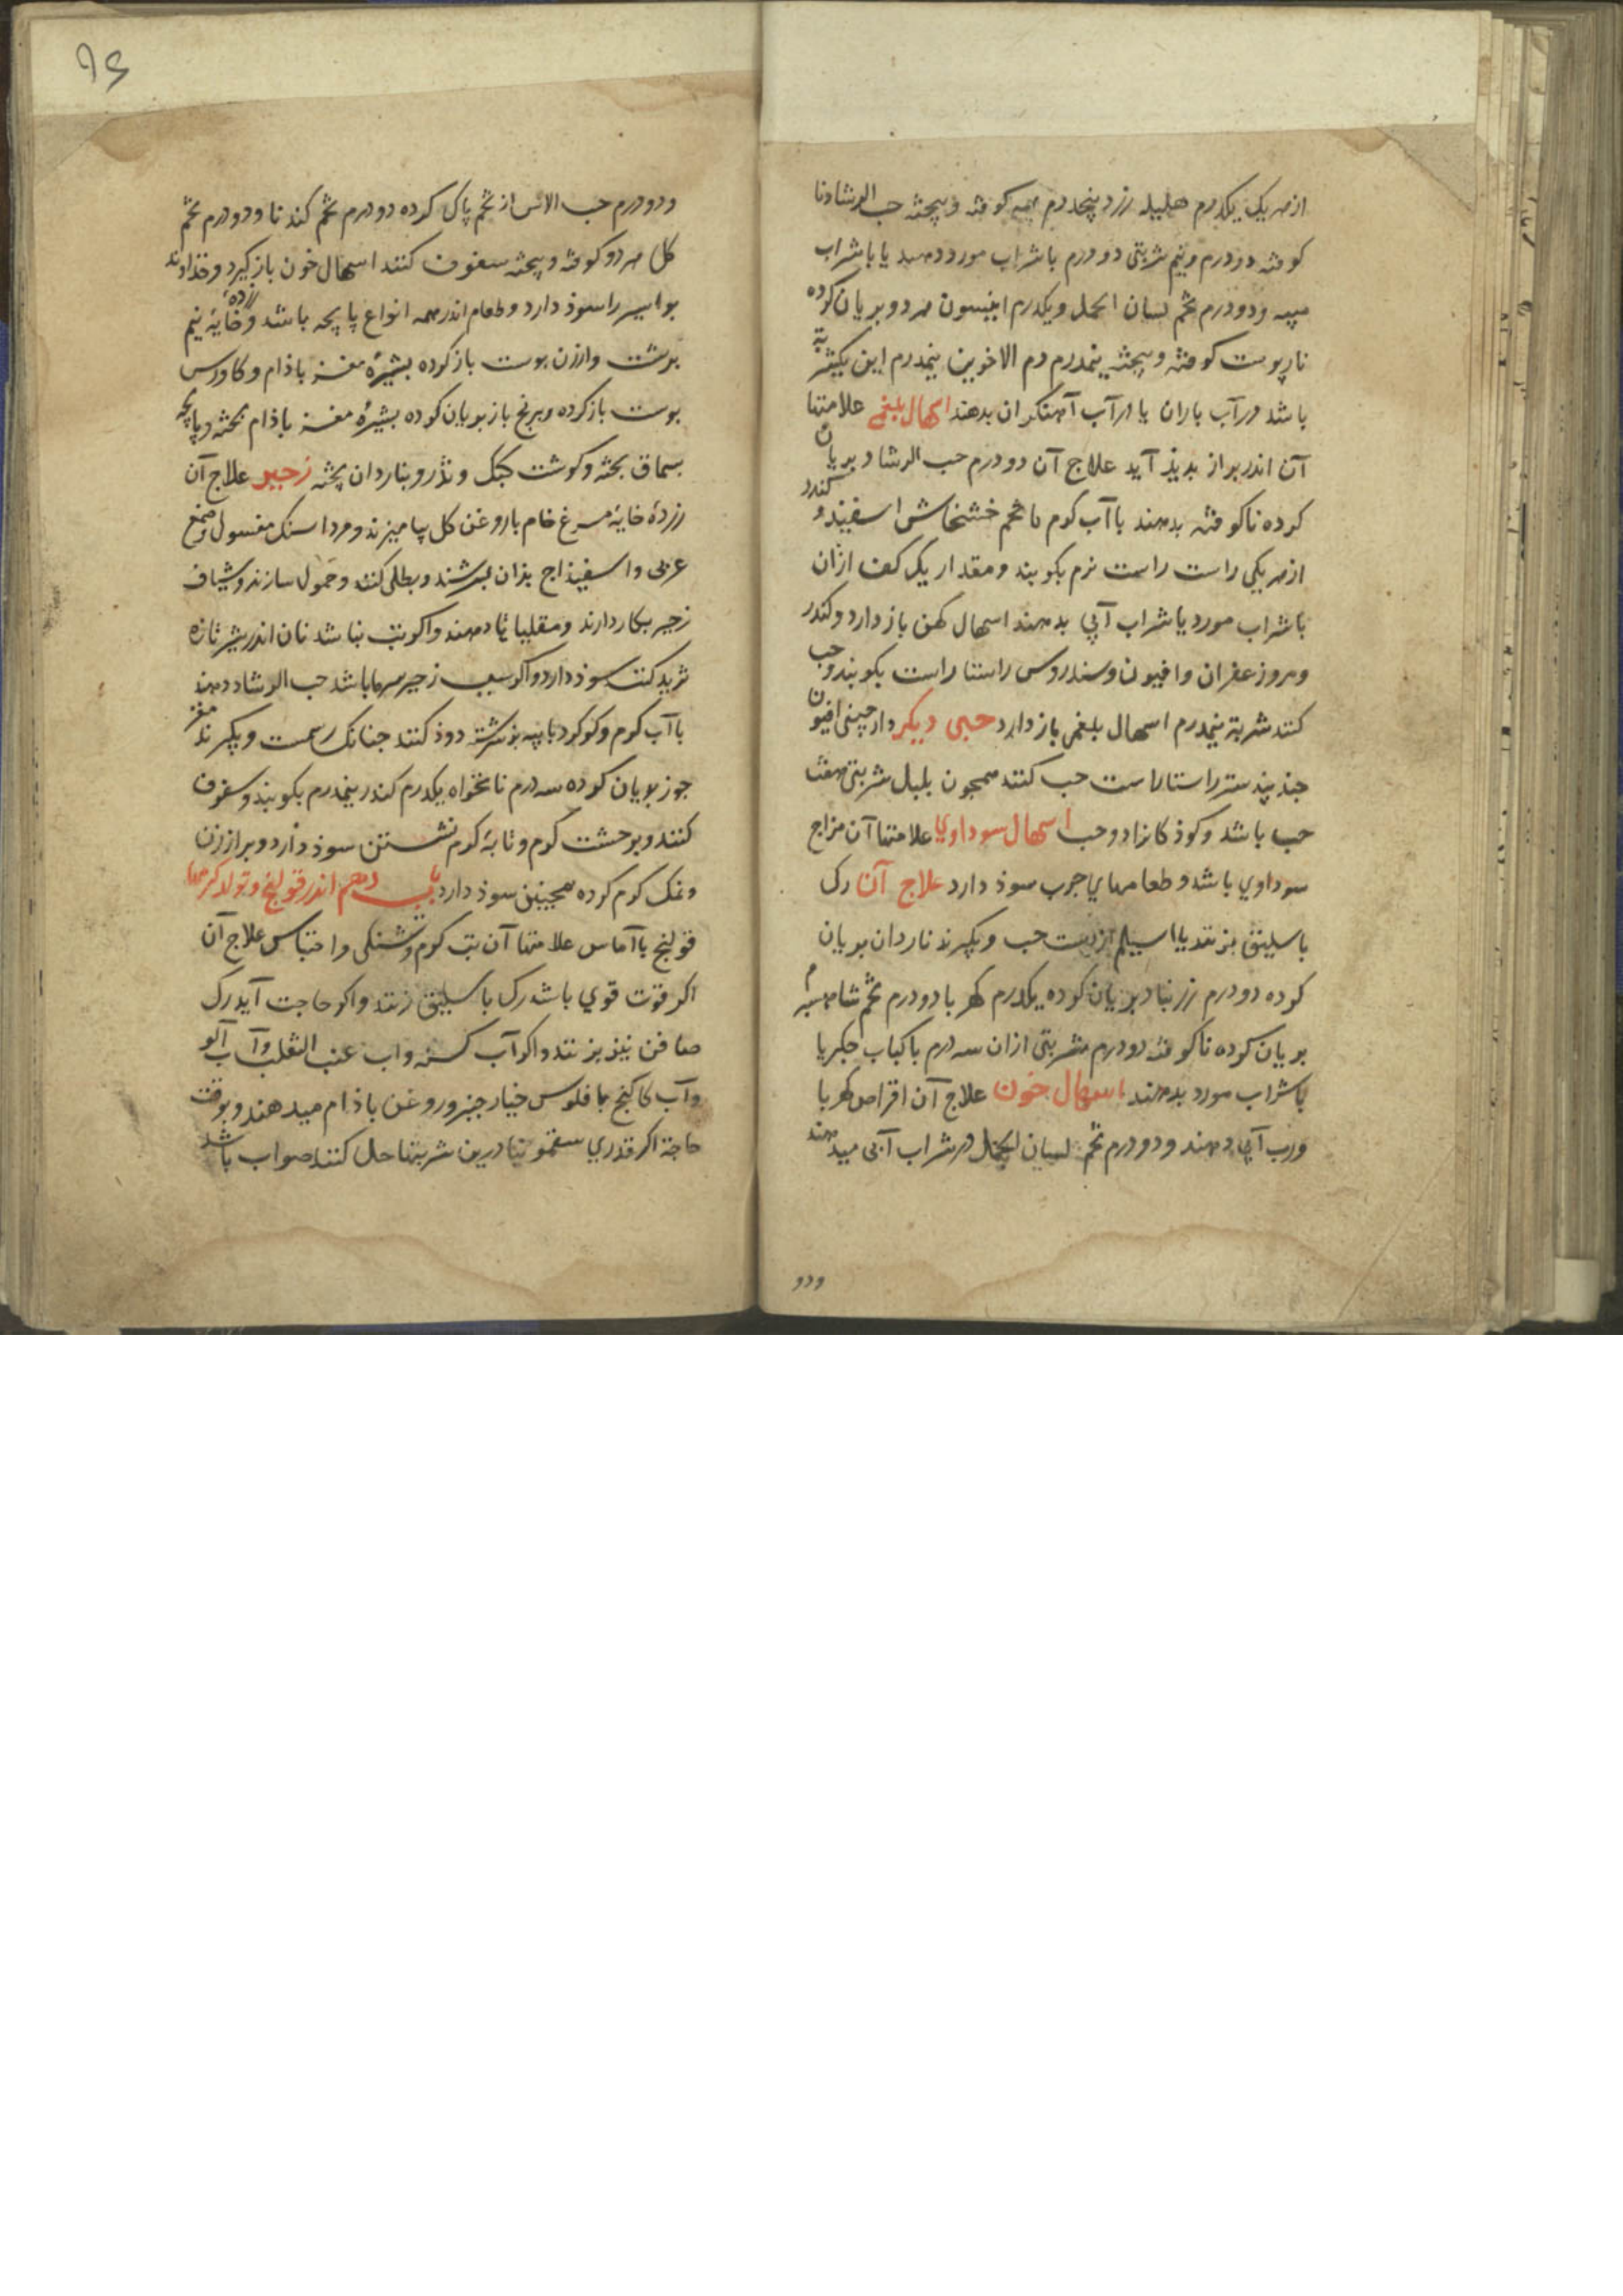 از هر یک یکدرم هلیله زرد پنجدرم همه کوفته و بیخته حب الرشاد نا
کوفته دو درم و نیم شربتی دو درم با شراب مورد دهند یا با شراب
میبه و دو درم تخم لسان الحمل و یکدرم انیسون هر دو بریان کرده
نارپوست کوفته و بیخته نیمدرم دم الاخوین نیمدرم این یکشربه
باشد در آب باران یا در آب آهنکران بدهند اسهال بلغمی علامتها
آن اندر براز بدیذ آید علاج آن دو درم حب الرشاد بریان
کرده ناکوفته بدهند با آب کرم تخم خشخاش اسفیند و کندر
از هر یکی راست راست نرم بکوبند و مقدار یک کف ازان
با شراب مورد یا شراب آبی بدهند اسهال کهن باز دارد و کندر
و مر و زعفران و افیون و سندروس راستا راست بکوبند و حب
کنند شربة نیمدرم اسهال بلغمی باز دارد حبی دیکر دارچینی افیون
جندبیدستر راستا راست حب کنند همجون بلبل شربتی هفت
حب باشد و کوذکانرا دو حب اسهال سوداوی علامتها آن مزاج
سوداوی باشد و طعامهای جرب سوذ دارد علاج آن رک
باسلیق بزنند یا اسیلم از دست جب و بکیرند ناردان بریان
کرده دو درم زرنباد بریان کرده یکدرم کهربا دو درم تخم شاهسبرم
بریان کرده ناکوفته دو درم شربتی ازان سه درم با کباب جکر یا
با شراب مورد بدهند اسهال خون علاج آن اقراص کهربا
و رب آبی دهند و دو درم تخم لسان الحمل در شراب آبی میدهند
ودو
٩٤
و دو درم حب الاس از تخم پاک کرده دو درم تخم کندنا و دو درم تخم
کل هر دو کوفته و بیخته سفوف کنند اسهال خون باز کیرد و خذاوند
بواسیر را سوذ دارد و طعام اندر همه انواع پاچه باشد و زرده خایهٔ نیم
برشت و ارزن بوست باز کرده بشیرهٔ مغز باذام و کاورس
بوست باز کرده و برنج باز بریان کرده بشیرهٔ مغز باذام بخته و پاچه
بسماق بخته و کوشت کبک و تذرو بناردان پخته زحیر علاج آن
زردهٔ خایهٔ مرغ خام با روغن کل بیامیزند و مرداسنک مغسول و صمغ
عربی و اسفیذاج بذان بسرشند و بطلی کنند و حمول سازند و شیاف
زحیر بکار دارند و مقلیاثا دهند و اکر تب نباشد نان اندر شیر تازه
ثرید کنند سوذ دارد و اکر سبب زحیر سرما باشد حب الرشاد دهند
با آب کرم و کوکرد با پیه بز سرشته دوذ کنند جنانک رسمست و بکیرند مغز
جوز بریان کرده سه درم نانخواه یکدرم کندر نیمدرم بکوبند و سفوف
کنند و بر خشت کرم و تابهٔ کرم نشستن سوذ دارد و بر ارزن
و نمک کرم کرده همجنین سوذ دارد باب دهم اندر قولنج و تولد کرمها
قولنج با آماس علامتها آن تب کرم و تشنکی و احتباس علاج آن
اکر قوت قوی باشد رک باسلیق زنند و اکر حاجت آید رک
صافن نیز بزنند و اکر آب کسنه و اب عنب الثعلب و آب آلو
و آب کاکنج با فلوس خیارجنبر و روغن باذام میدهند و بوقت
حاجة اکر قدری سقمونیا درین شربتها حل کنند صواب باشد